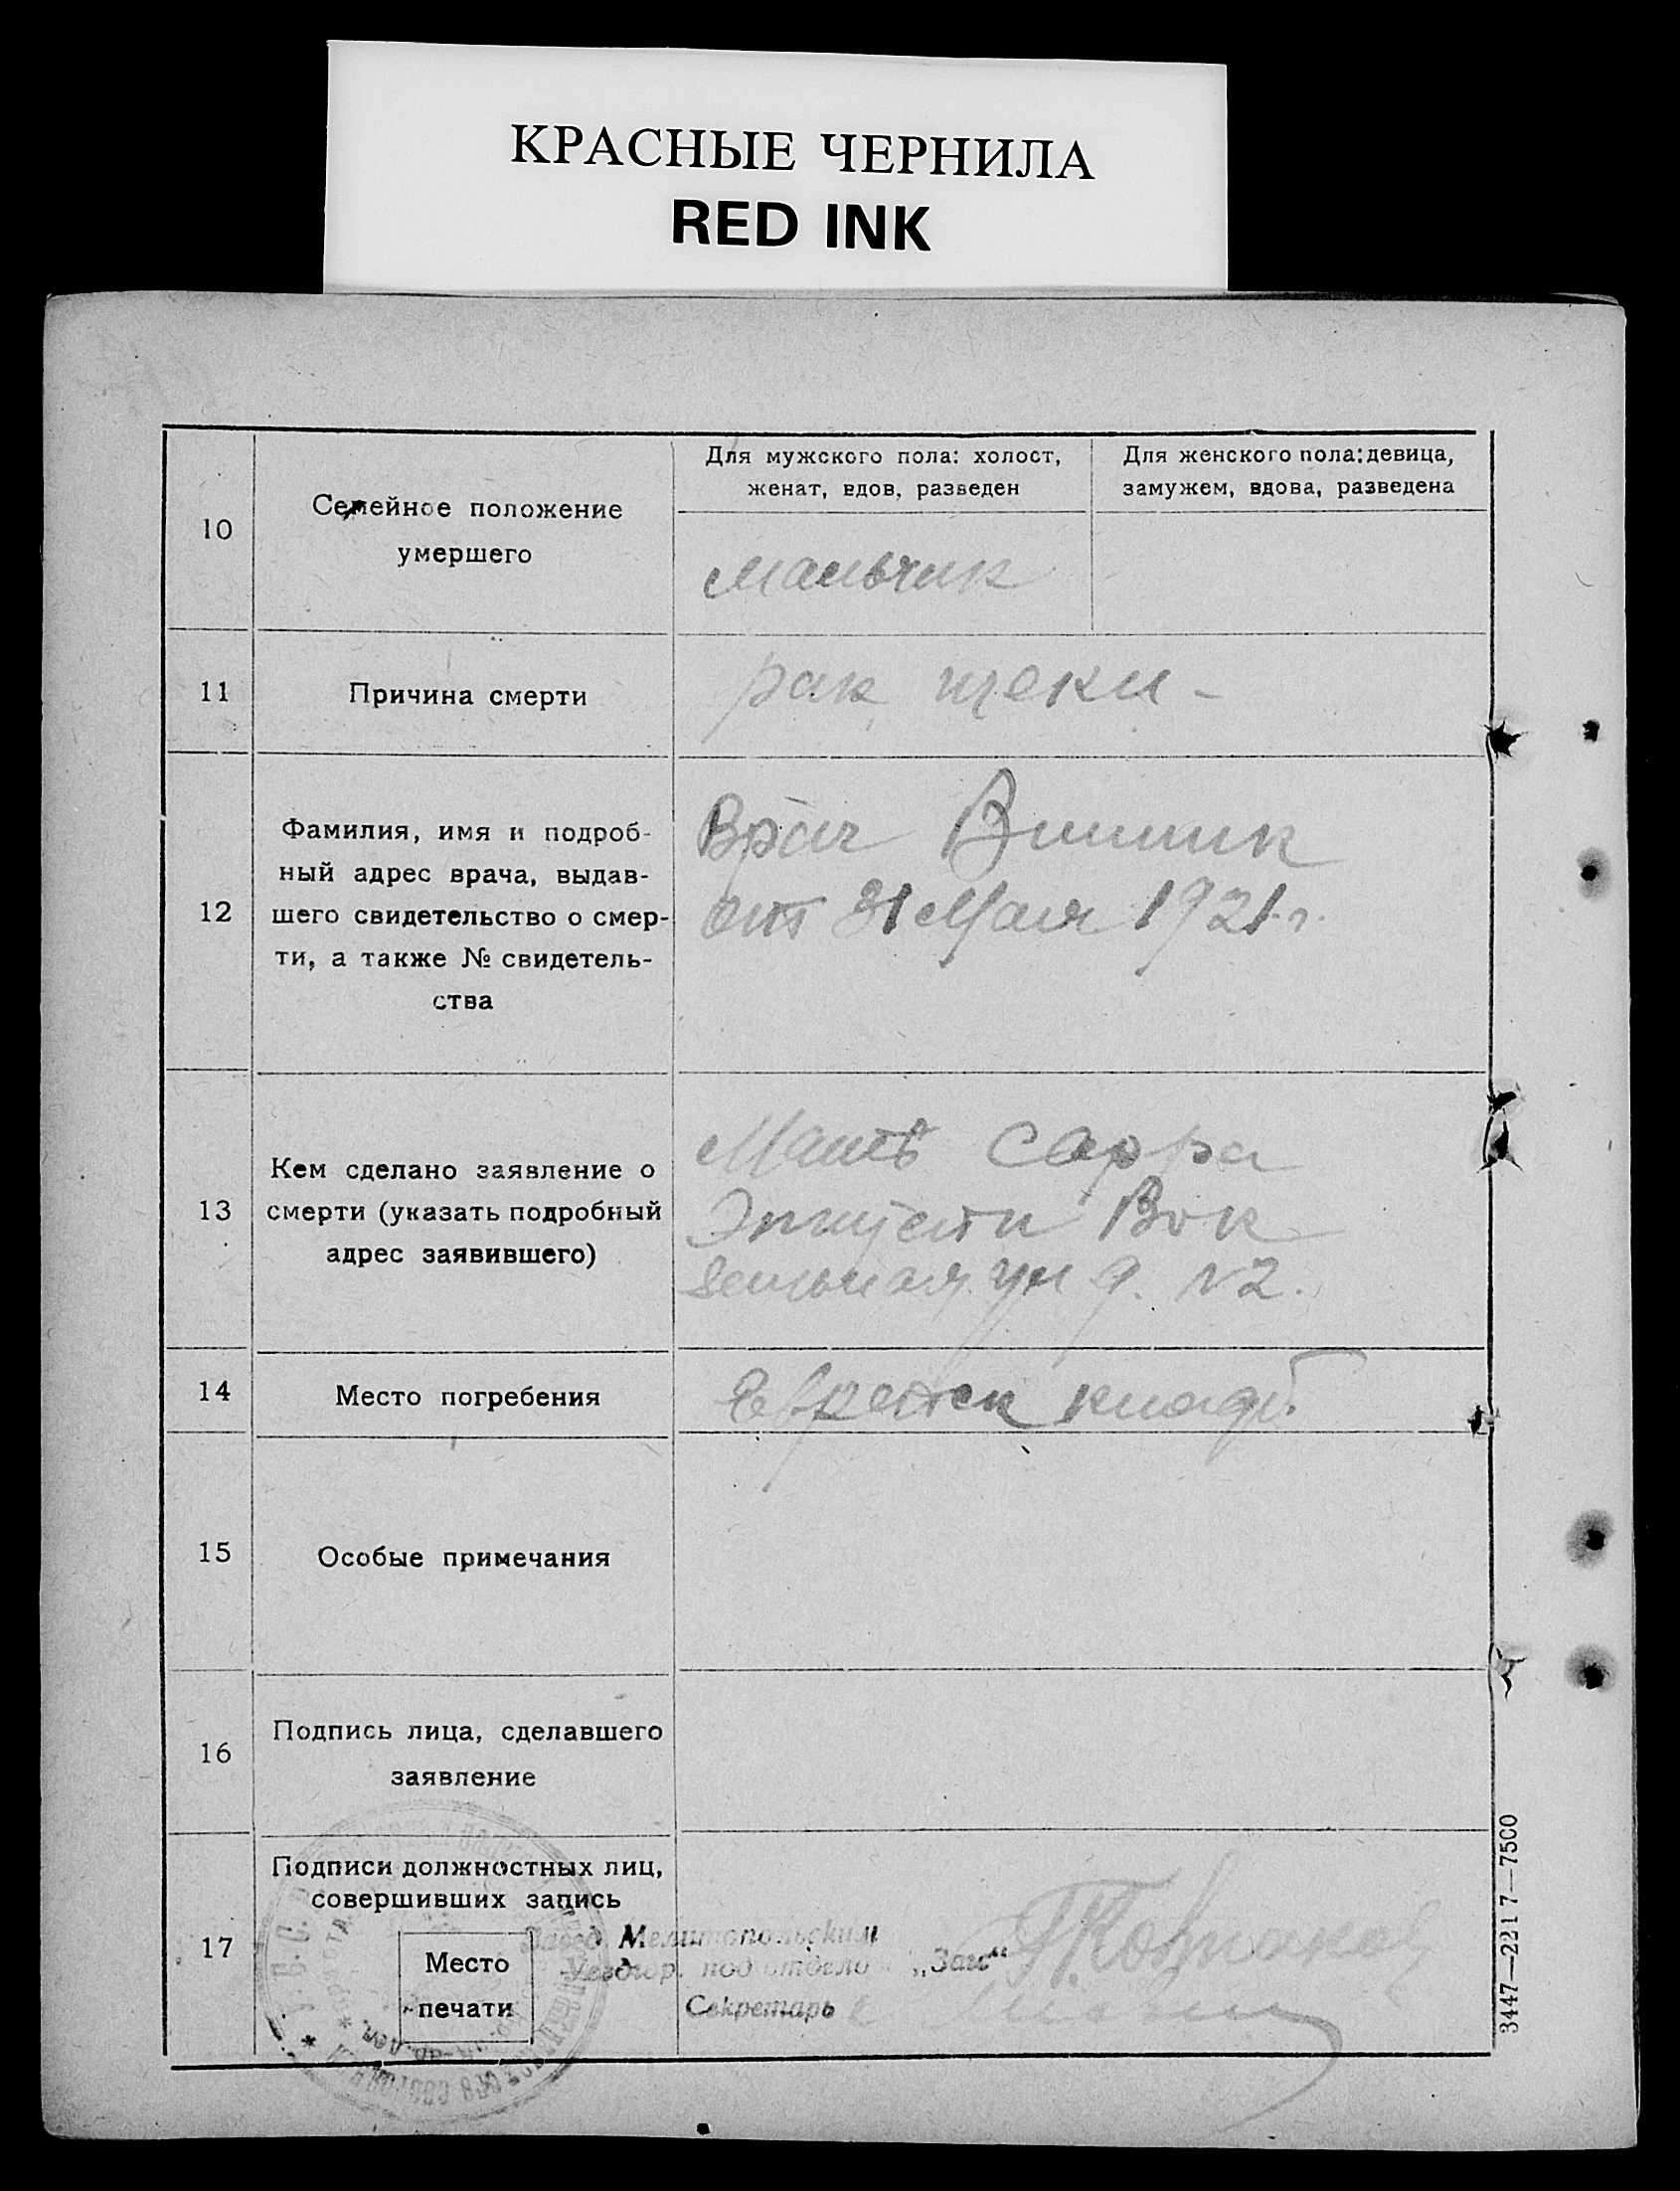 КРАСНЫЕ ЧЕРНИЛА
RED INK
10
Семейное положение
умершего
Для мужского пола: холост,
женат, вдов, разведен
Для женского пола: девица,
замужем, вдова, разведена
мальчик
11
Причина смерти
рак щеки -
12
Фамилия, имя и подроб-
ный адрес врача, выдав-
шего свидетельство о смер-
ти, а также № свидетель-
ства
Врач Винник
от 31 Мая 1921 г.
13
Кем сделано заявление о
смерти (указать подробный
адрес заявившего)
Мать Сарра
Вок
зальная ул д. N2.
14
Место погребения
Еврейск кладб.
15
Особые примечания
16
Подпись лица, сделавшего
заявление
17
Подписи должностных лиц,
совершивших запись
Место
печати
Завед. Мелитопольским
Уездгор. подотдело „Загс“
Секретарь
3447—2217—7500